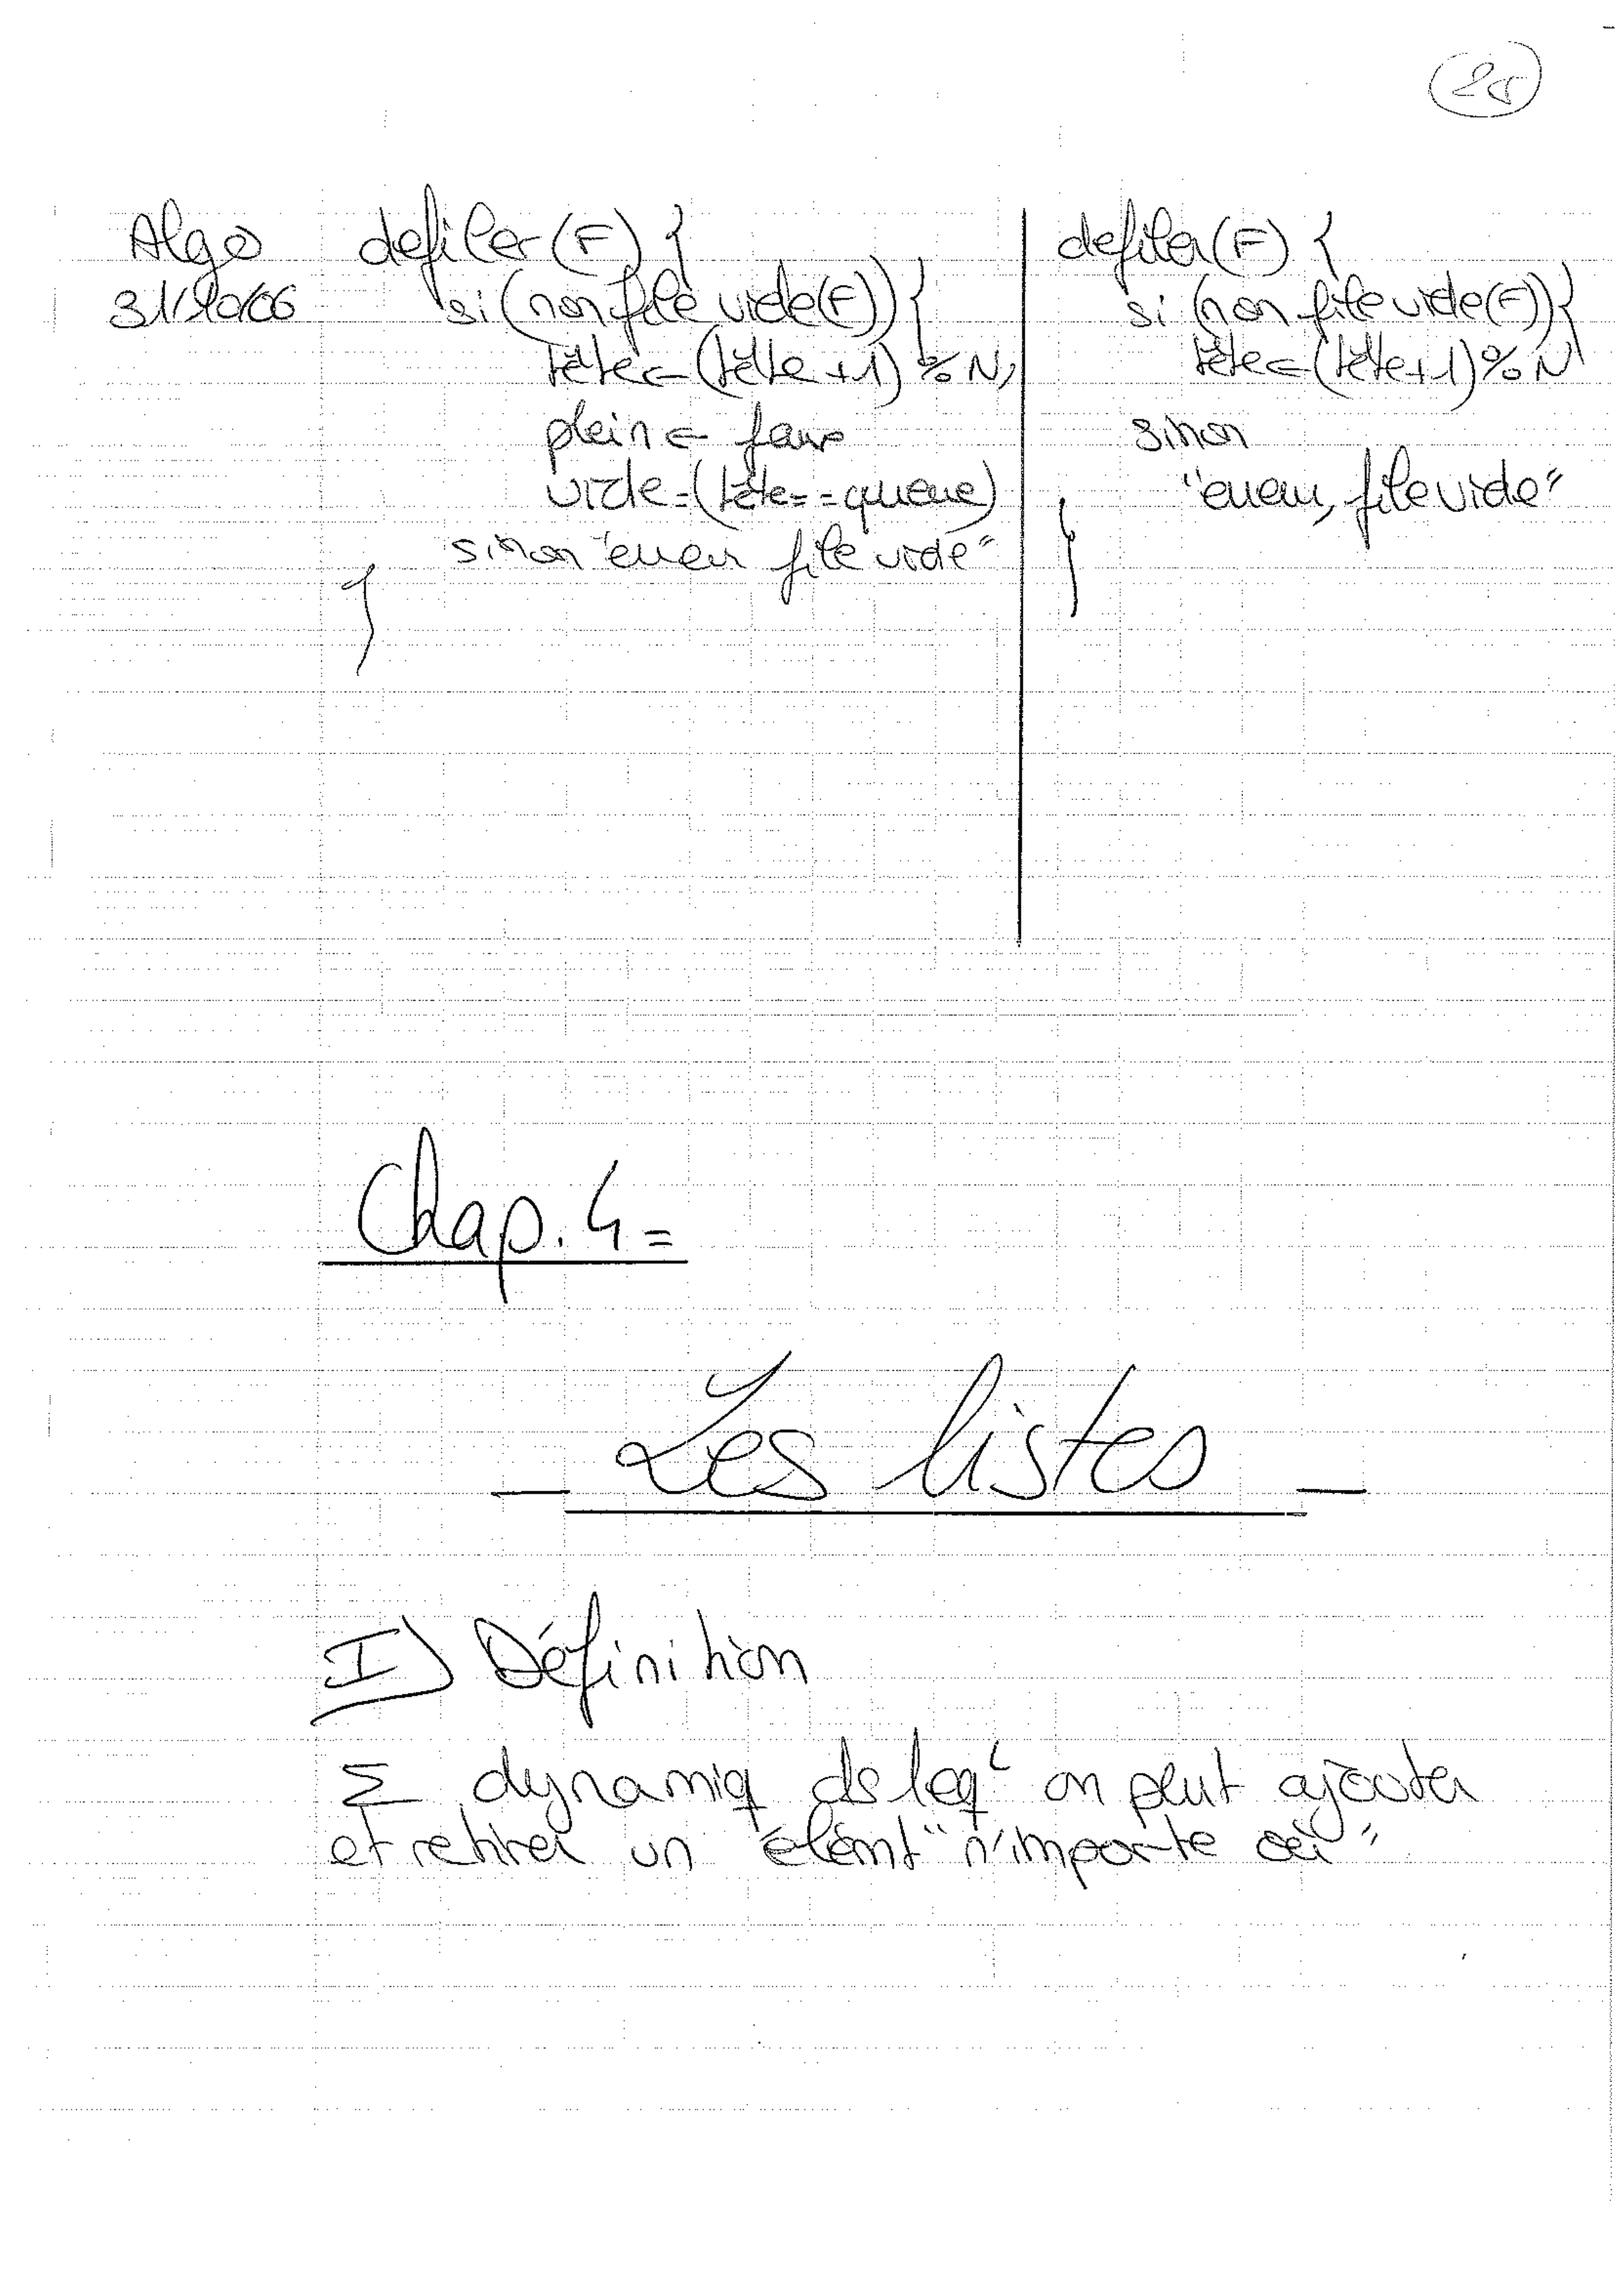 25
Algo
31/10/06
defiler (F) {
si (non file vide (F)) {
tête ← (tête +1) % N;
plein ← faux
vide = (tête == queue)
sinon "erreur file vide"
}
defiler (F) {
si (non file vide (F)) {
tête ← (tête +1) % N
sinon
"erreur, file vide"
}
Chap. 4 =
_ Les listes _
I) Définition
Σ dynamiq ds leql on peut ajouter
et retirer un élémt "n'importe où"